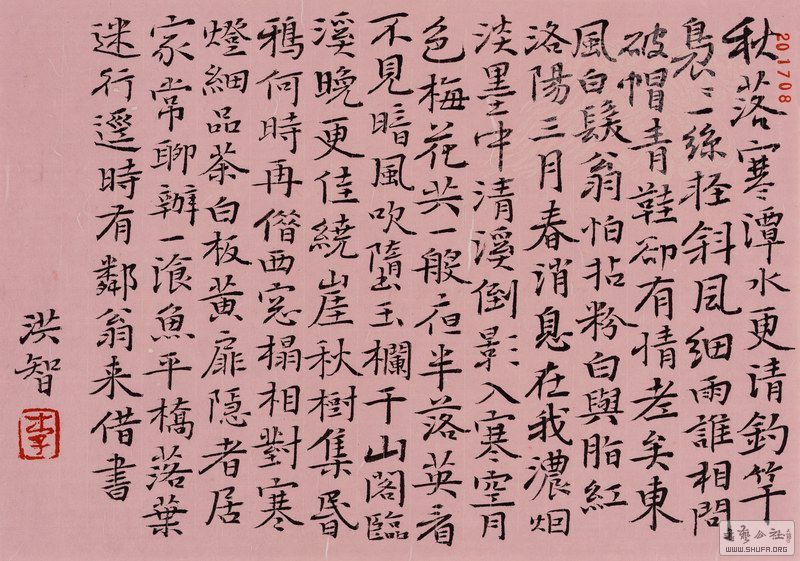 秋落寒潭水更清釣竿
裊裊一絲輕斜風細雨誰相問
破帽青鞋卻有情老矣東
風白鬂翁怕拈粉白與脂紅
洛陽三月春消息在我濃烟
淡墨中清溪倒影入寒空月
色梅花共一般夜半落英看
不見暗風吹墮玉欄干山閣臨
溪晚更佳繞崖秋樹集昏
鴉何時再僭西窓榻相對寒
燈細品茶白板黃扉隱者居
家常聊辦一飡魚平橋落葉
迷行逕時有鄰翁来借書
洪智
李
201708
書藝公社
WWW.SHUFA.ORG